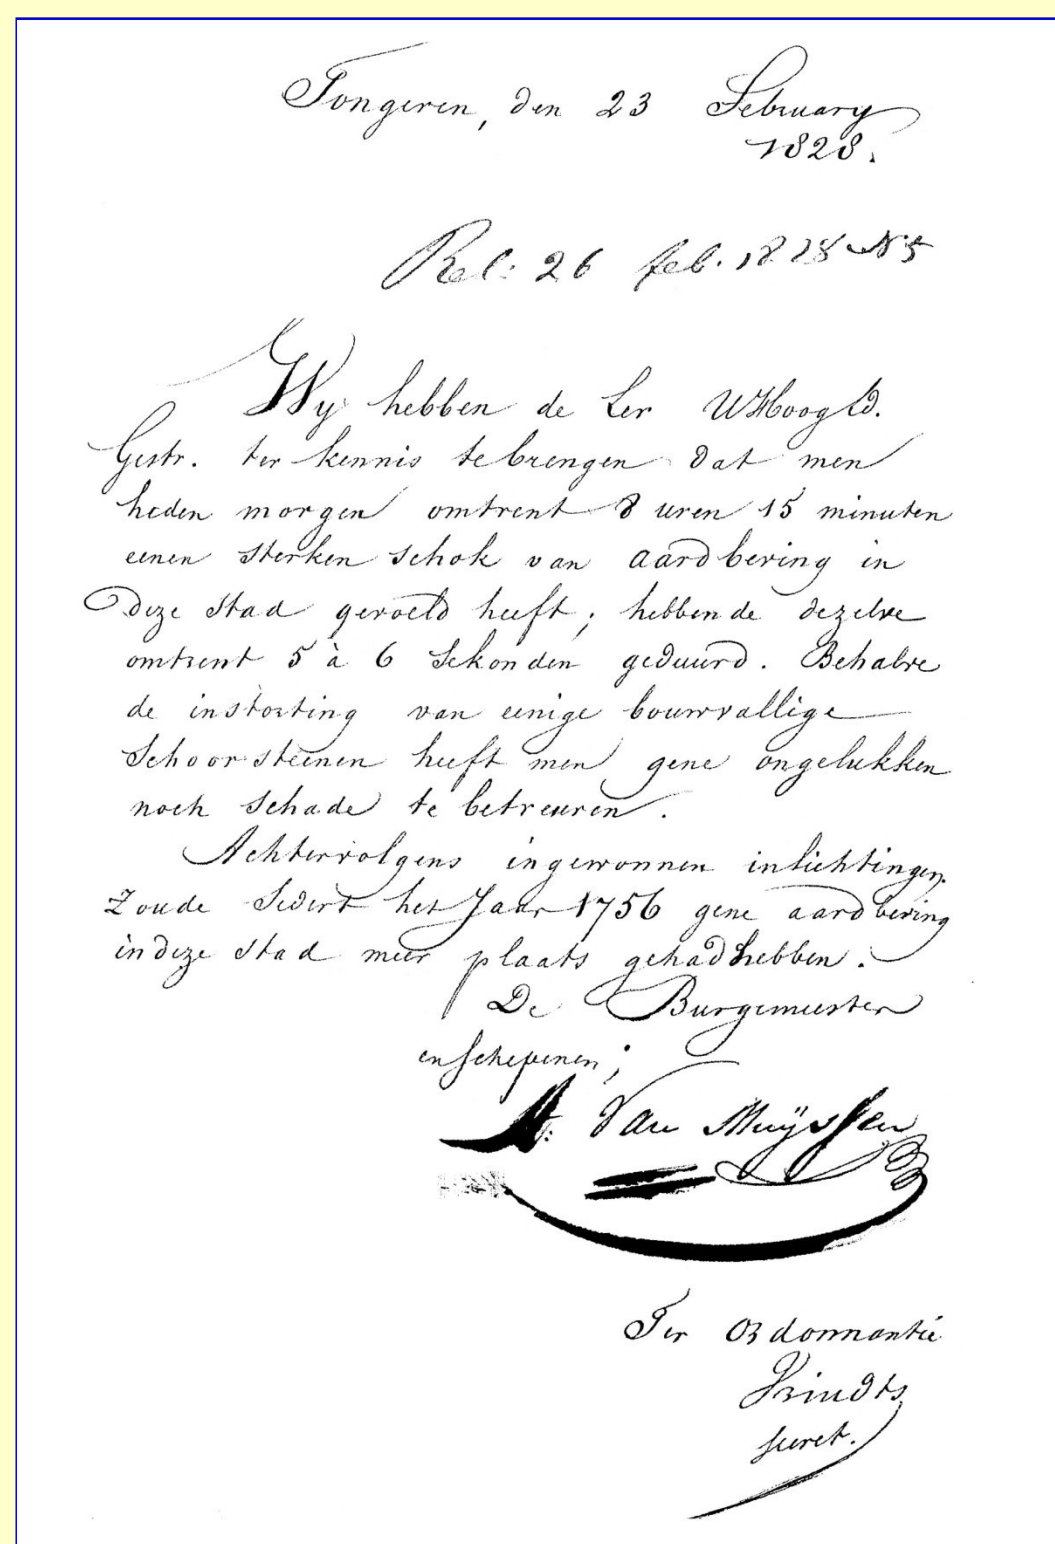 Tongeren, den 23 February
1828.
Rel: 26 feb. 1828 N 5
Wy hebben de Eer UHoogEd.
Gestr. ter kennis te brengen dat men
heden morgen omtrent 8 uren 15 minuten
eenen sterken schok van aardbeving in
deze stad gevoeld heeft; hebbende dezelve
omtrent 5 à 6 sekonden geduurd. Behalve
de instorting van einige bouwvallige
schoorsteenen heeft men gene ongelukken
noch schade te betreuren.
Achtervolgens ingewonnen inlichtingen
zoude sedert het Jaar 1756 gene aardbeving
in deze stad meer plaats gehad hebben.
De Burgemeester
en schepenen;
Van Muÿssen
Ter Ordonnantie
Vrindts
secret.